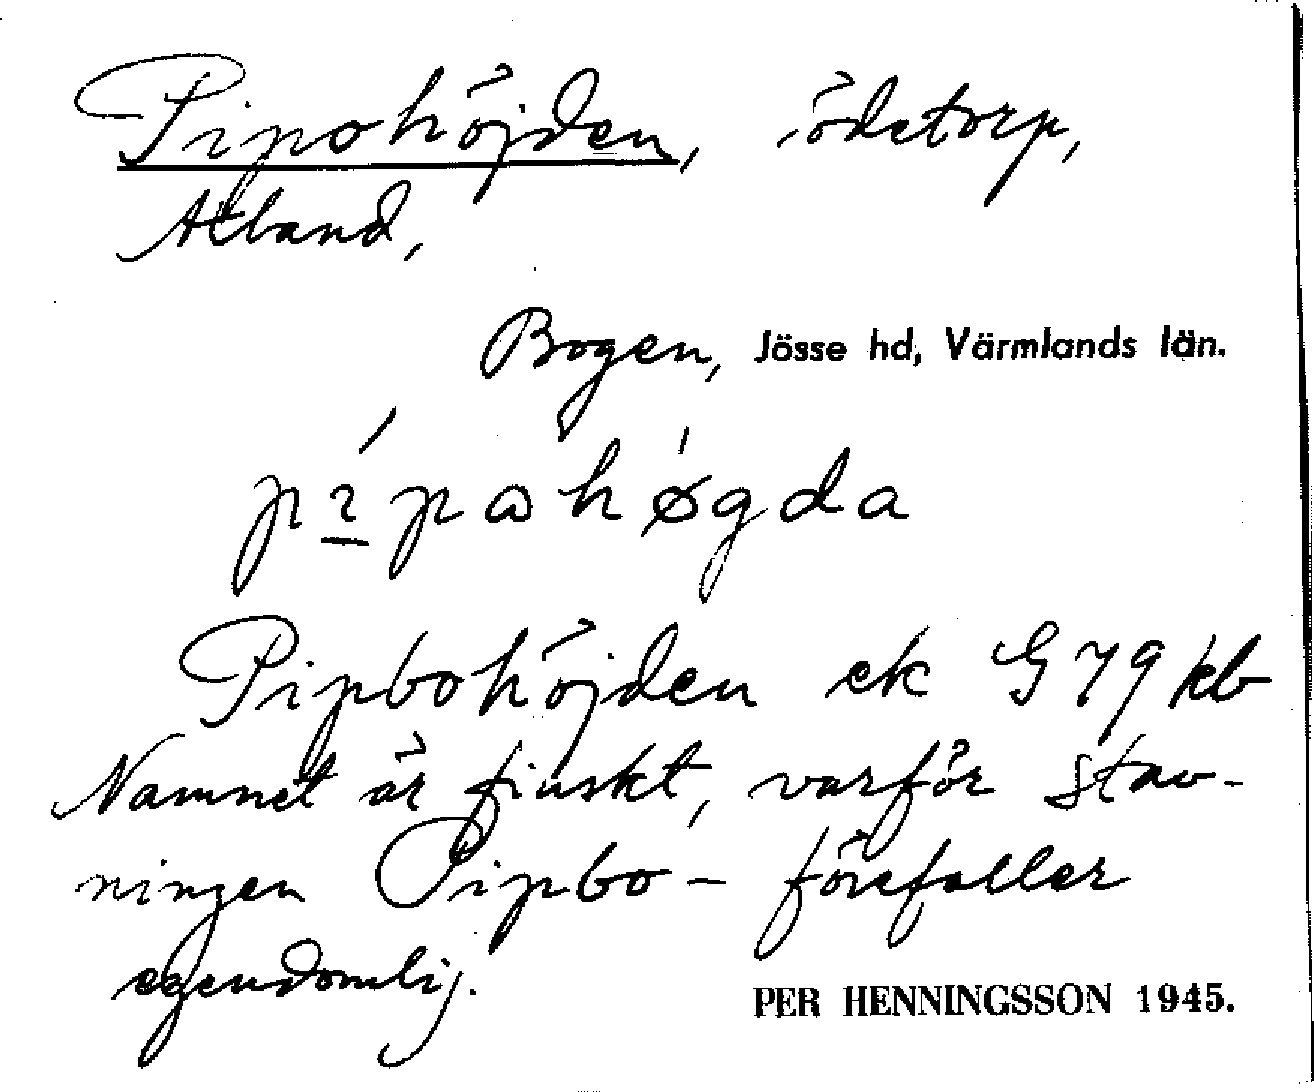 Pipohöjden, ödetorp,
Åbland,
Bogen, Jössе hd, Värmlands län.
Pipbohöjden ek G 79 kb
Namnet är finskt, varför stav-
ningen Pipbo- förefaller
egendomlig.
PER HENNINGSSON 1945.